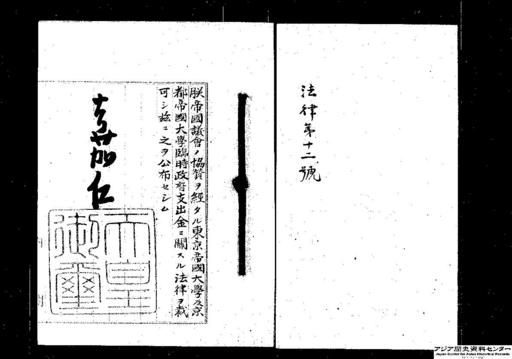 法律第十二號
朕帝國議會ノ協賛ヲ經タル東京帝國大學及京
都帝國大學臨時政府支出金ニ關スル法律ヲ裁
可シ玆ニ之ヲ公布セシム
嘉仁
天皇御璽
アジア歴史資料センター
Japan Center for Asian Historical Records